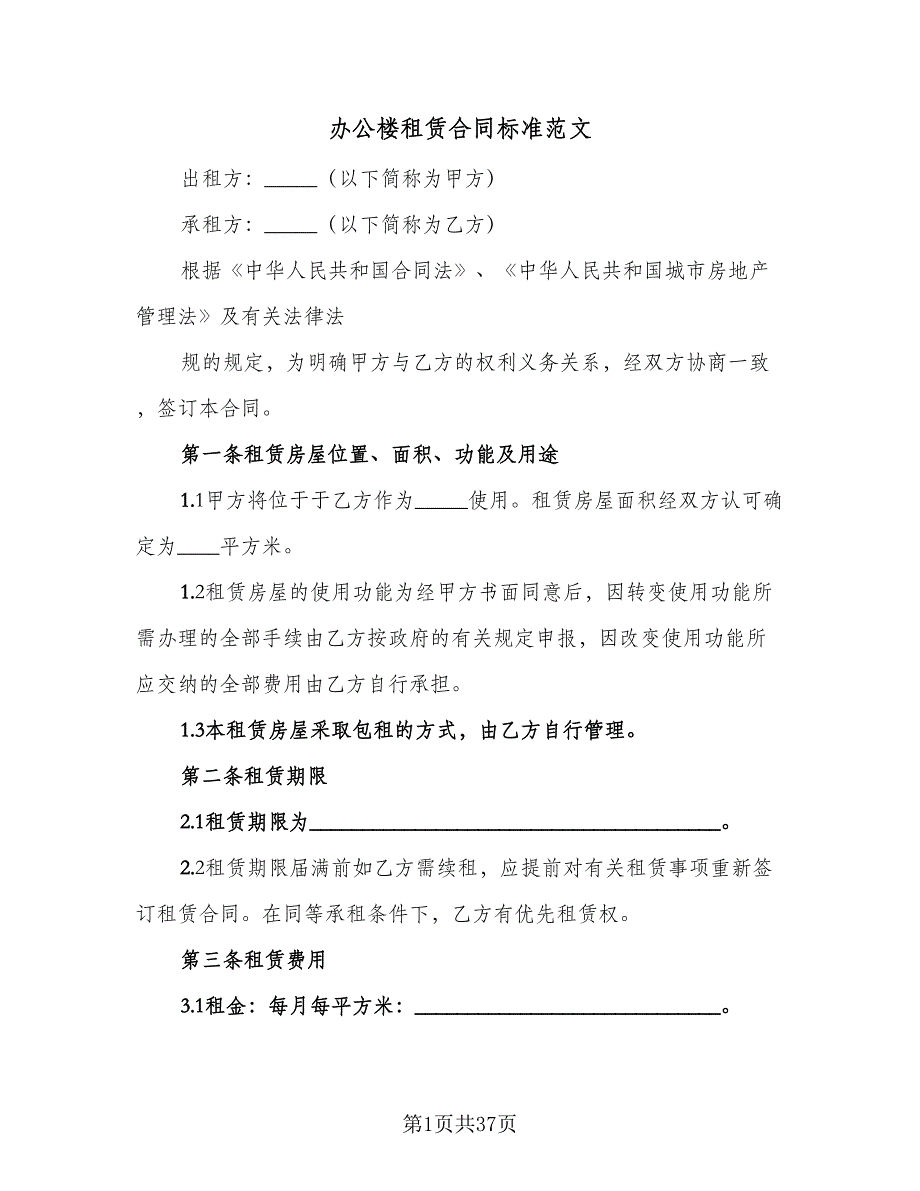 办公楼租赁合同标准范文
出租方：_____（以下简称为甲方）
承租方：_____（以下简称为乙方）
根据《中华人民共和国合同法》、《中华人民共和国城市房地产
管理法》及有关法律法
规的规定，为明确甲方与乙方的权利义务关系，经双方协商一致
，签订本合同。
第一条租赁房屋位置、面积、功能及用途
1.1甲方将位于于乙方作为_____使用。租赁房屋面积经双方认可确
定为____平方米。
1.2租赁房屋的使用功能为经甲方书面同意后，因转变使用功能所
需办理的全部手续由乙方按政府的有关规定申报，因改变使用功能所
应交纳的全部费用由乙方自行承担。
1.3本租赁房屋采取包租的方式，由乙方自行管理。
第二条租赁期限
2.1租赁期限为_______________________________________。
2.2租赁期限届满前如乙方需续租，应提前对有关租赁事项重新签
订租赁合同。在同等承租条件下，乙方有优先租赁权。
第三条租赁费用
3.1租金：每月每平方米：_____________________________。
第1页共37页